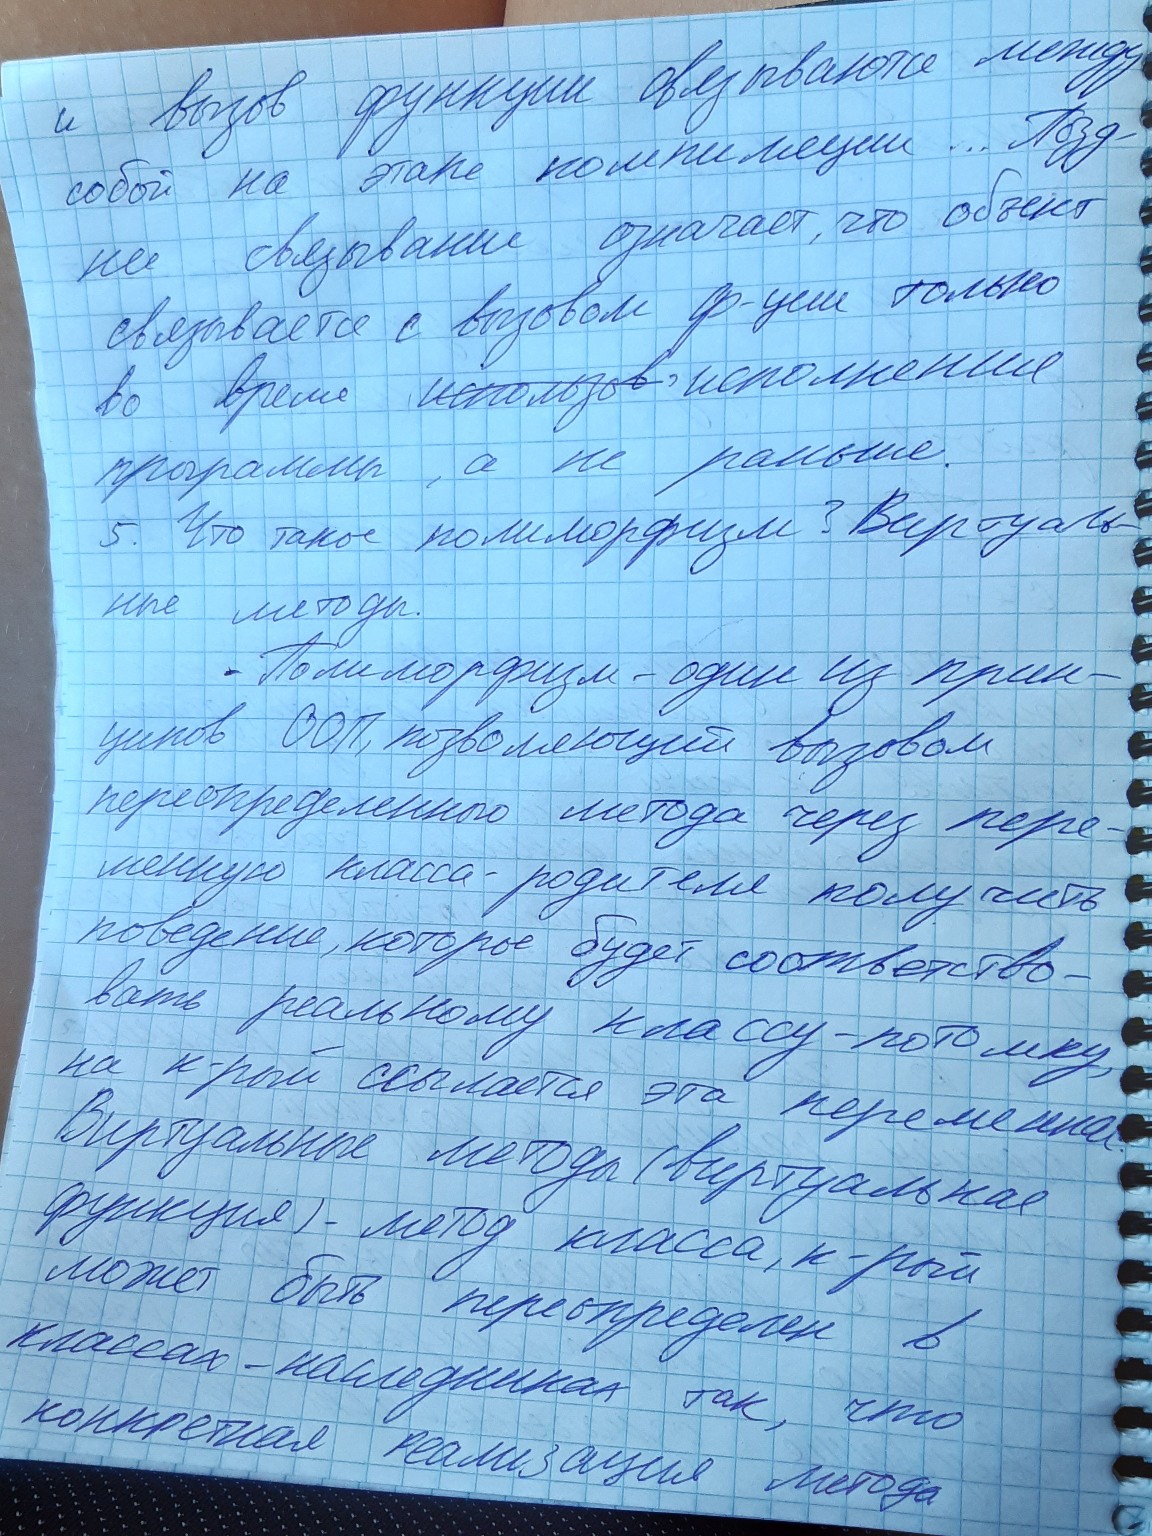 и вызов функции связываются между
собой на этапе компиляции ... Позд-
нее связывание означает, что объект
связывается с вызовом ф-ции только
во время использов исполнения
программы, а не раньше.
5. Что такое полиморфизм? Виртуаль-
ные методы.
- Полиморфизм - один из прин-
ципов ООП, позволяющий вызовом
переопределенного метода через пере-
менную класса-родителя получить
поведение, которое будет соответство-
вать реальному классу-потомку,
на к-рый ссылается эта переменная.
Виртуальные методы (виртуальная
функция) - метод класса, к-рый
может быть переопределен в
классах-наследниках так, что
конкретная реализация метода